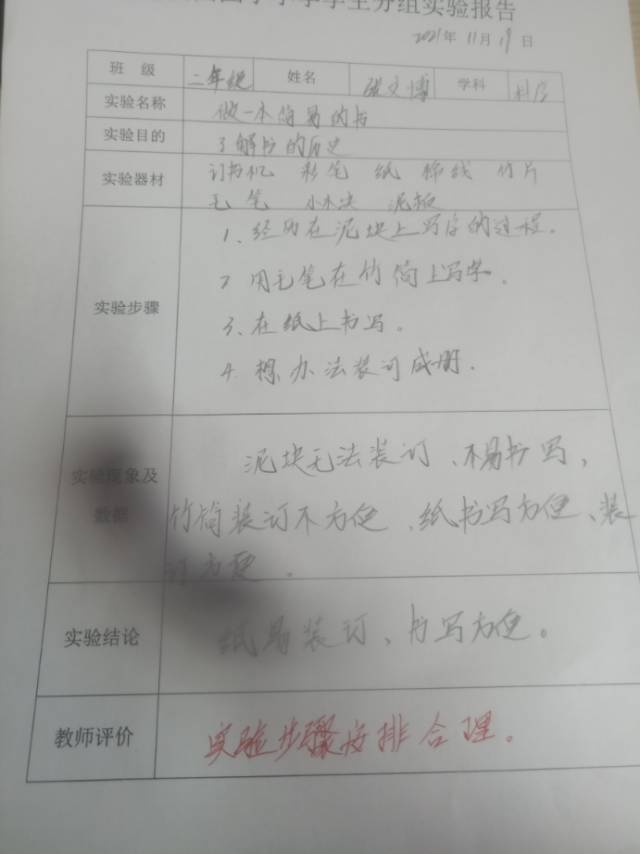 小学学生分组实验报告
2021年11月19日
班 级 二年级 姓名 张文博 学科 科学
实验名称 做一本简易的书
实验目的 了解书的历史
实验器材 订书机 彩笔 纸 棉线 竹片
毛笔 小木块 泥板
实验步骤
1、经历在泥块上写字的过程。
2 用毛笔在竹简上写字。
3、在纸上书写。
4. 想办法装订成册.
实验现象及数据
泥块无法装订、不易书写,
竹简装订不方便、纸书写方便、装
订方便。
实验结论 纸易装订、书写方便。
教师评价 实验步骤安排合理。